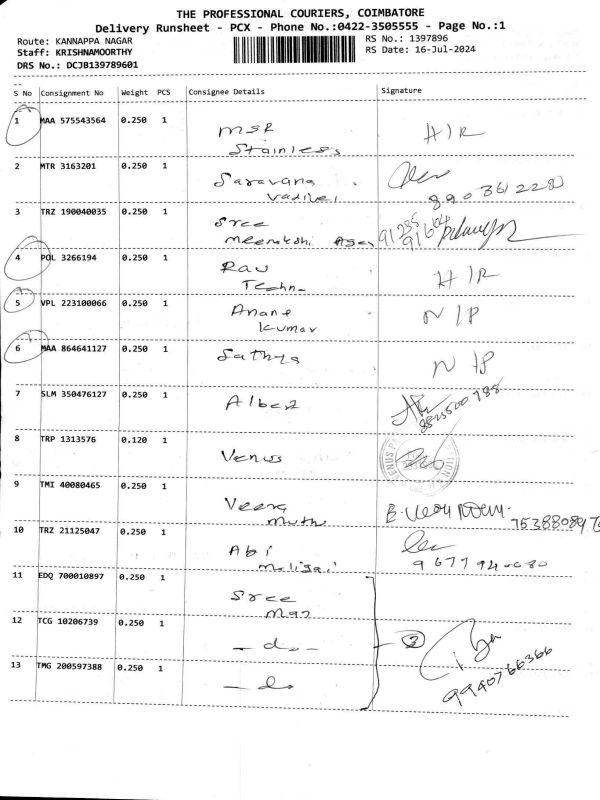 THE PROFESSIONAL COURIERS, COIMBATORE
Delivery Runsheet - PCX - Phone No.:0422-3505555 - Page No.:1
Route: KANNAPPA NAGAR RS No.: 1397896
Staff: KRISHNAMOORTHY RS Date: 16-Jul-2024
DRS No.: DCJB139789601
S No Consignment No Weight PCS Consignee Details Signature
1 MAA 575543564 0.250 1 MSR H/R
Stainless
2 MTR 3163201 0.250 1 Saravana
Vadivel 890361228
3 TRZ 190040035 0.250 1 Sree
Meenakshi
4 POL 3266194 0.250 1 Rav H/R
Techn
5 VPL 223100066 0.250 1 Anand N/P
Kumar
6 MAA 864641127 0.250 1 Sathya N/P
7 SLM 350476127 0.250 1 Albert
8 TRP 1313576 0.120 1 Venus
9 TMI 40080465 0.250 1 Veera
Muthu 7538808976
10 TRZ 21125047 0.250 1 Abi
Maligai
11 EDQ 700010897 0.250 1 Sree
12 TCG 10206739 0.250 1 - do - 3
13 TMG 200597388 0.250 1 - do 9940766366